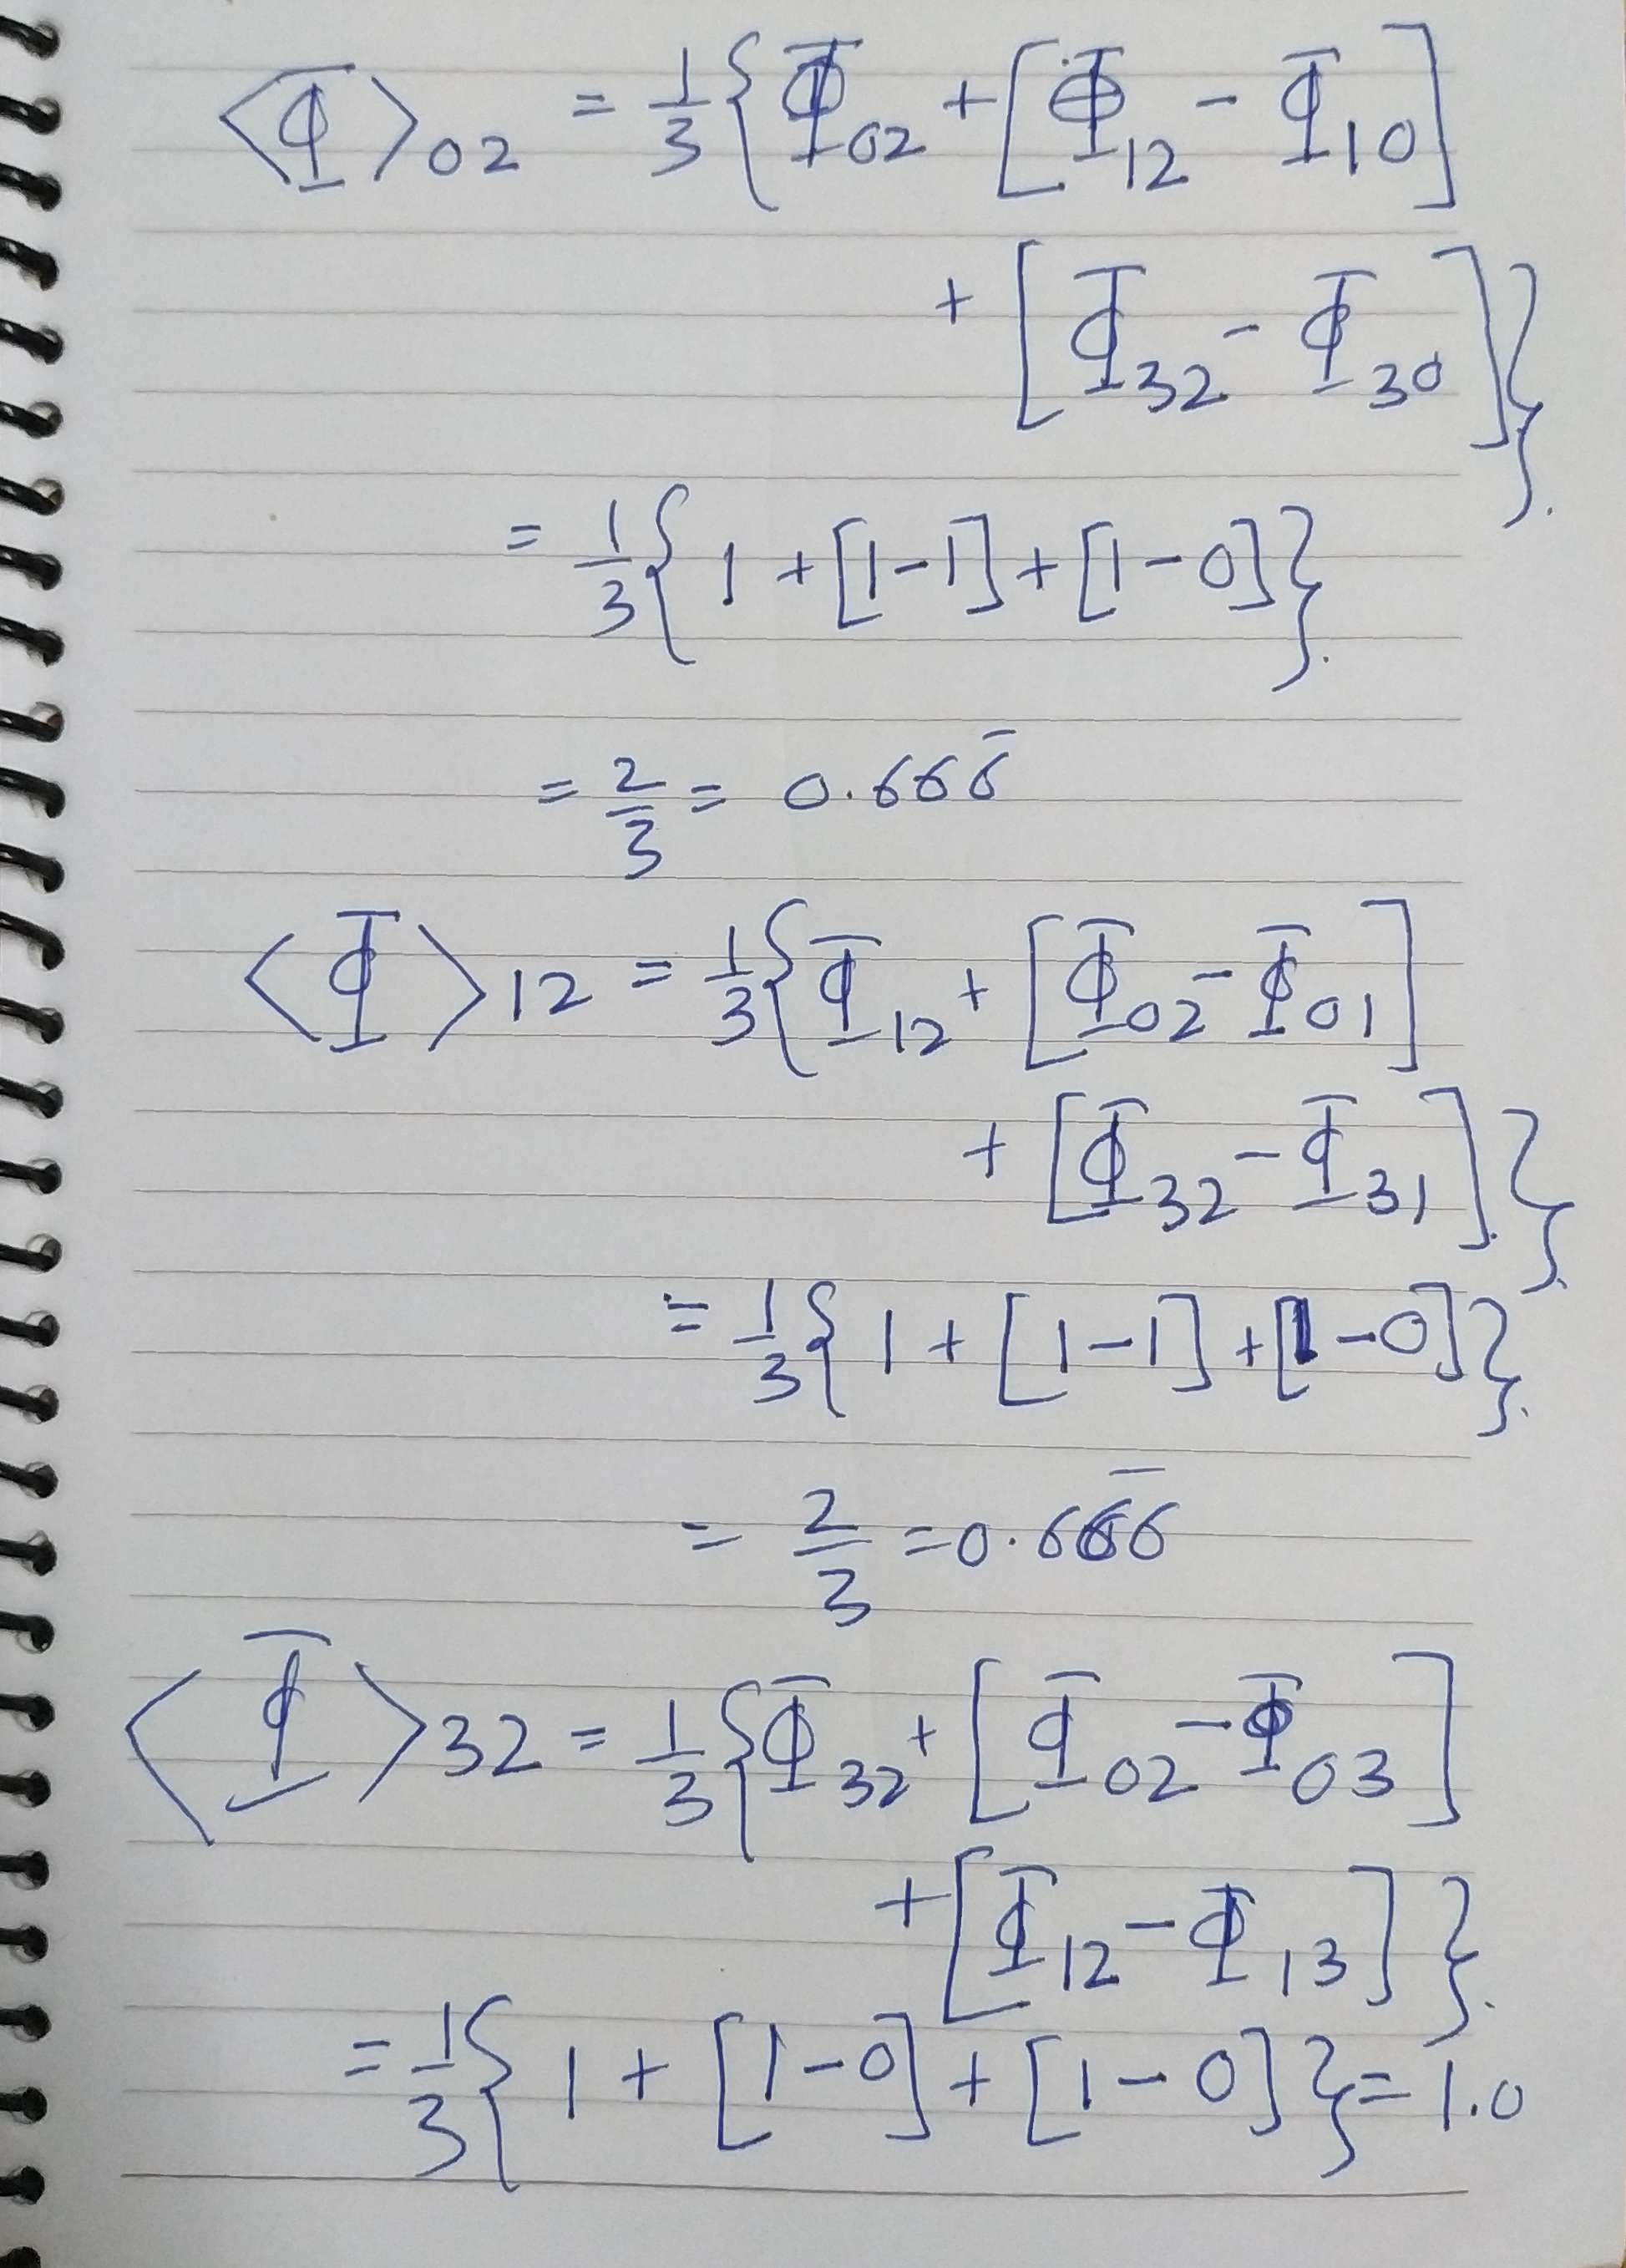 ⟨Φ⟩02 = 1/3 { Φ02 + [ Φ12 - Φ10 ]
+ [ Φ32 - Φ30 ] }.
= 1/3 { 1 + [1-1] + [1-0] }.
= 2/3 = 0.666̅
⟨Φ⟩12 = 1/3 { Φ12 + [ Φ02 - Φ01 ]
+ [ Φ32 - Φ31 ] }.
= 1/3 { 1 + [1-1] + [1-0] }.
= 2/3 = 0.666̅
⟨Φ⟩32 = 1/3 { Φ32 + [ Φ02 - Φ03 ]
+ [ Φ12 - Φ13 ] }.
= 1/3 { 1 + [1-0] + [1-0] } = 1.0